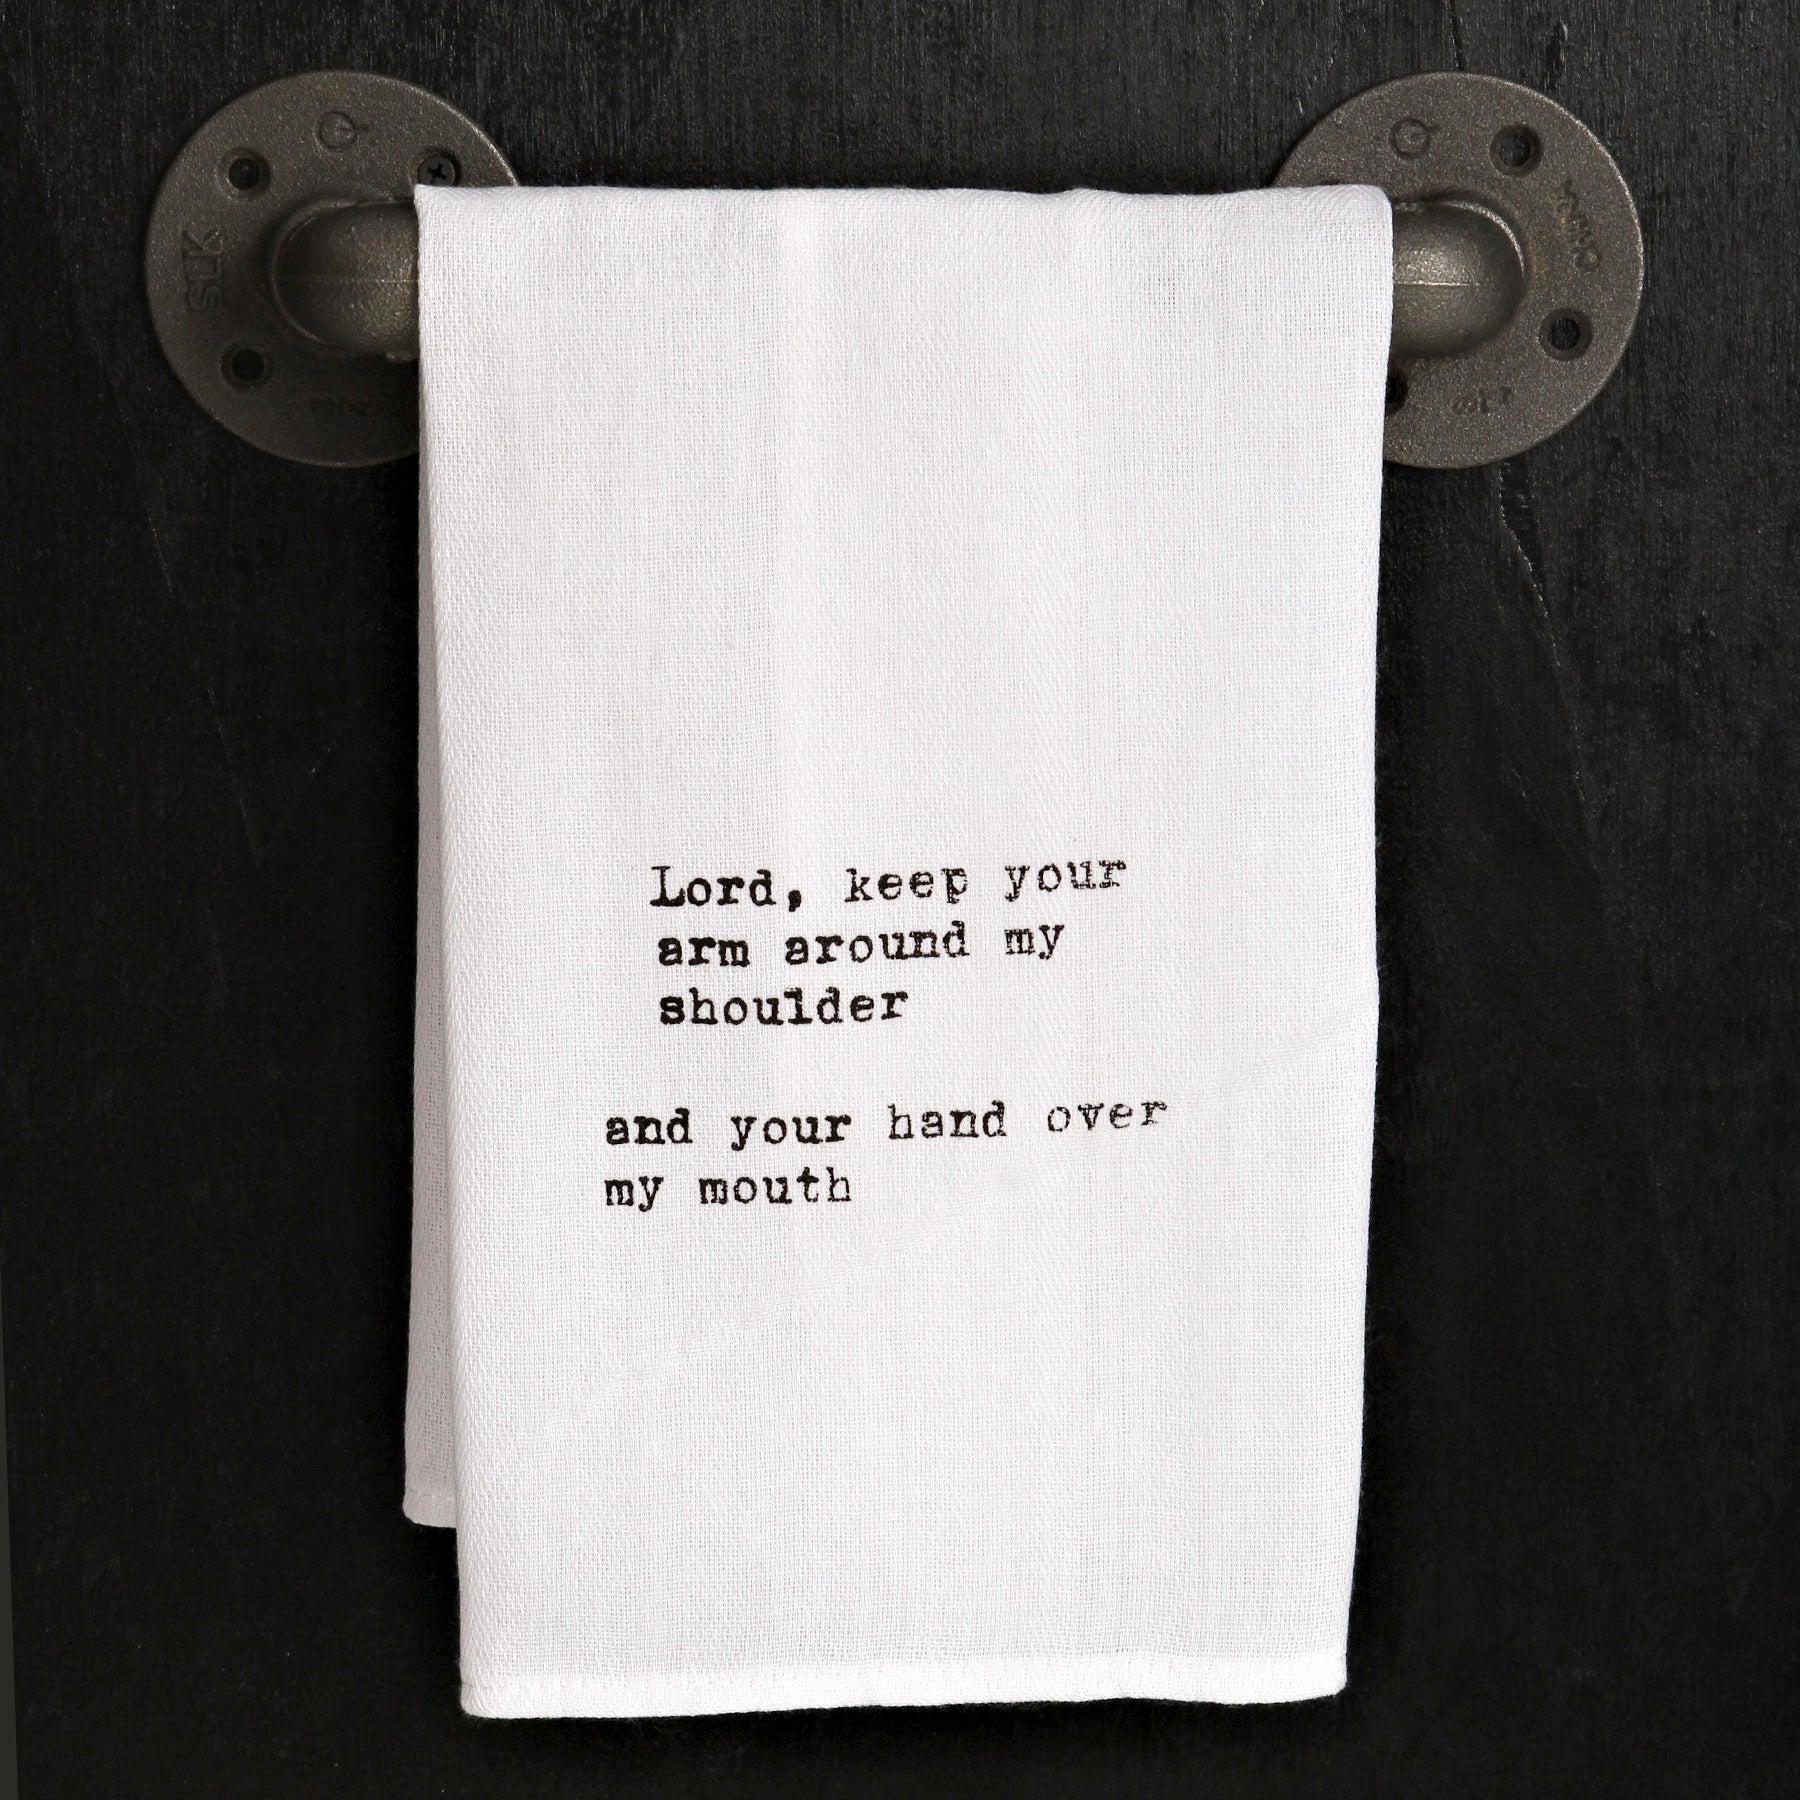 Q
SLK
Q
CHINA
Lord, keep your
arm around my
shoulder
and your hand over
my mouth